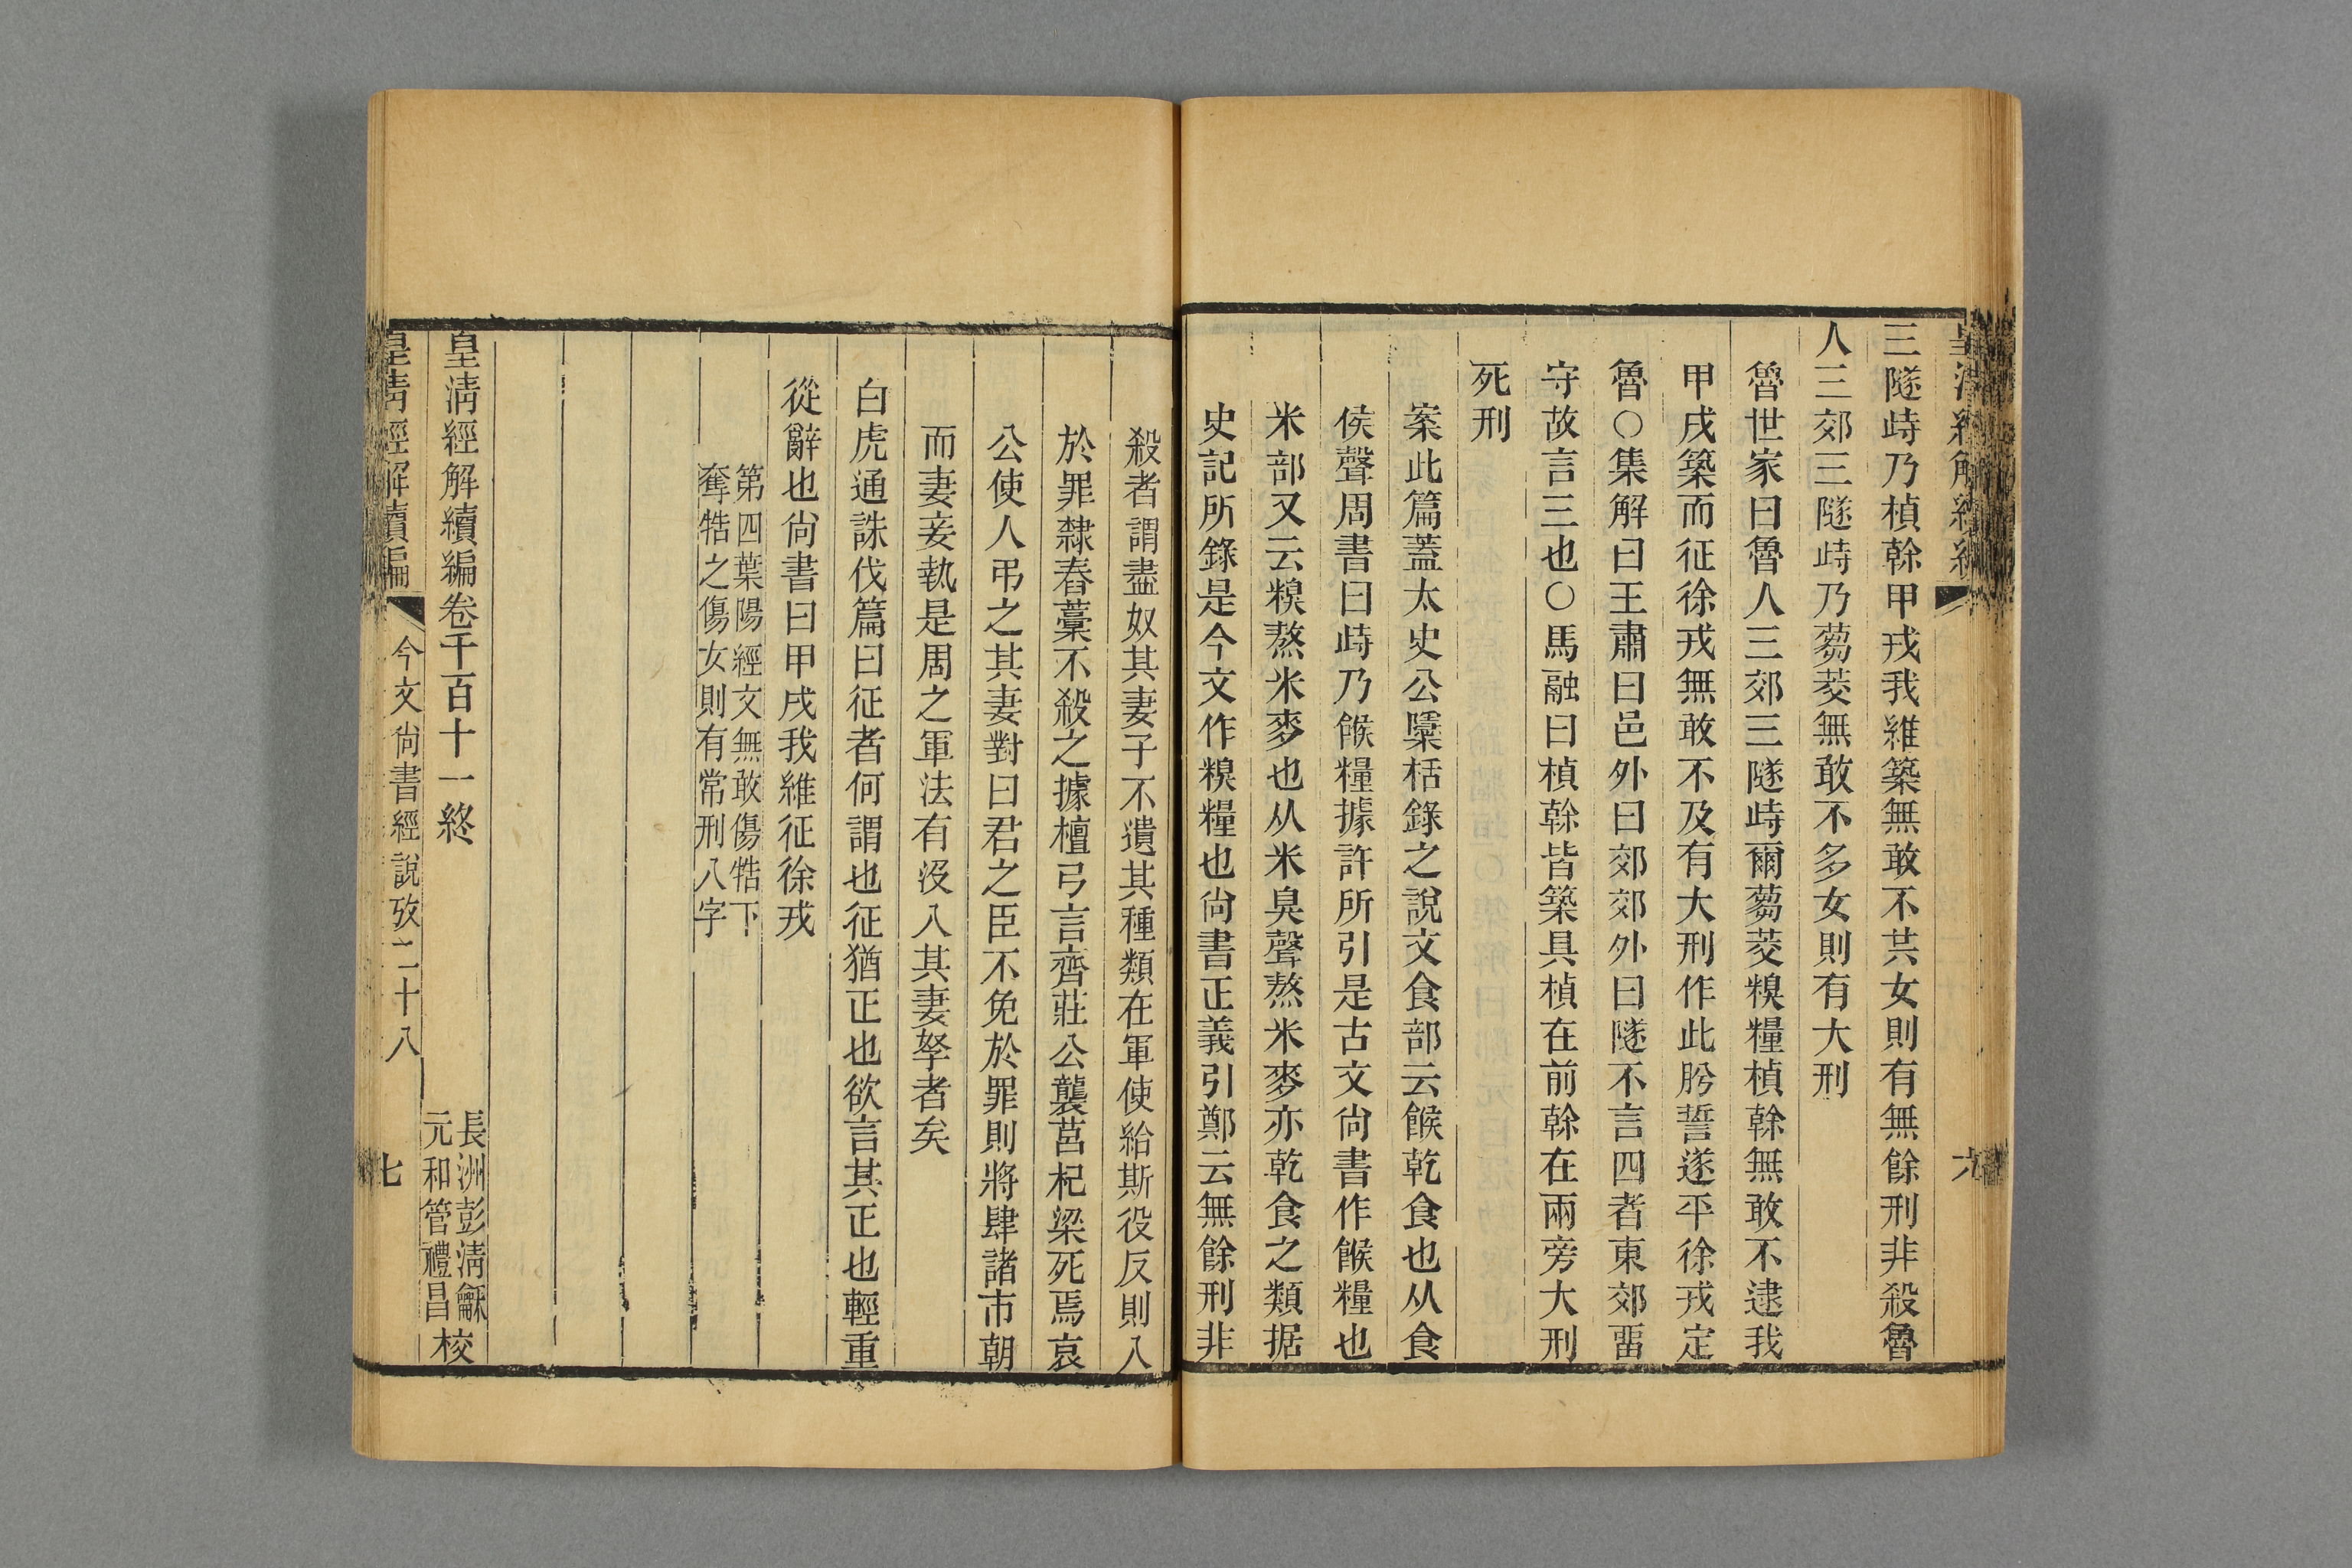 三隧峙乃楨榦甲戎我維築無敢不共女則有無餘刑非殺魯
人三郊三隧峙乃芻茭無敢不多女則有大刑
魯世家曰魯人三郊三隧峙爾芻茭糗糧楨榦無敢不逮我
甲戌築而征徐戎無敢不及有大刑作此肹誓遂平徐戎定
魯○集解曰王肅曰邑外曰郊郊外曰隧不言四者東郊畱
守故言三也○馬融曰楨榦皆築具楨在前榦在兩旁大刑
死刑
案此篇蓋太史公檃栝錄之說文食部云餱乾食也从食
侯聲周書曰峙乃餱糧據許所引是古文尙書作餱糧也
米部又云糗熬米麥也从米臭聲熬米麥亦乾食之類据
史記所錄是今文作糗糧也尙書正義引鄭云無餘刑非
殺者謂盡奴其妻子不遺其種類在軍使給斯役反則入
於罪隸舂藁不殺之據檀弓言齊莊公襲莒杞梁死焉哀
公使人弔之其妻對曰君之臣不免於罪則將肆諸市朝
而妻妾執是周之軍法有沒入其妻孥者矣
白虎通誅伐篇曰征者何謂也征猶正也欲言其正也輕重
從辭也尙書曰甲戌我維征徐戎
第四葉陽經文無敢傷牿下
奪牿之傷女則有常刑八字
皇清經解續編卷千百十一終
長洲彭清龢
元和管禮昌校
皇清經解續編
今文尙書經說攷二十八
七